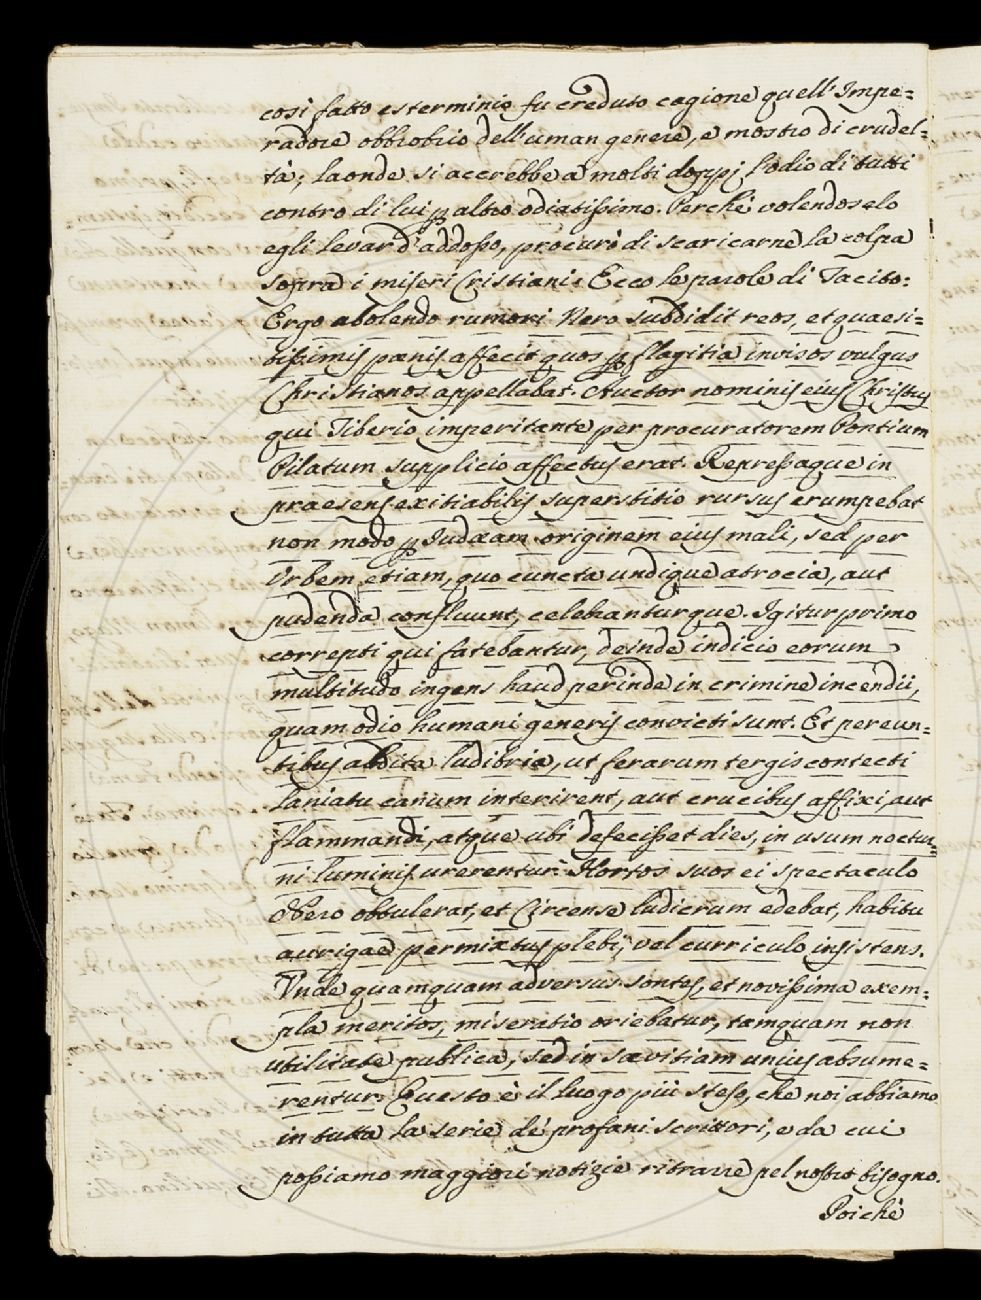 così fatto esterminio fu creduto cagione quell' Impe=
radore obbrobrio dell' uman genere, e mostro di crudel=
tà; laonde si accrebbe a molti doppj l'odio di tutti
contro di lui p altro odiatissimo. Perchè volendoselo
egli levar d' addosso, procurò di scaricarne la colpa
sopra i miseri Cristiani. Ecco le parole di Tacito:
Ergo abolendo rumori Nero subdidit reos, et quaesi=
tissimis pœnis affecit quos p flagitia invisos vulgus
Christianos appellabat. Auctor nominis eius Christus
qui Tiberio imperitante per procuratorem Pontium
Pilatum supplicio affectus erat. Repressaque in
praesens exitiabilis superstitio rursus erumpebat
non modo p Judæam originem eius mali, sed per
Vrbem etiam, quo cuncta undique atrocia, aut
pudenda confluunt, celebranturque. Igitur primo
correpti qui fatebantur, deinde indicio eorum
multitudo ingens haud perinde in crimine incendii,
quam odio humani generis convicti sunt. Et pereun=
tibus addita ludibria, ut ferarum tergis contecti
laniatu canum interirent, aut crucibus affixi, aut
flammandi, atque ubi defecisset dies, in usum noctur=
ni luminis urerentur. Hortos suos ei spectaculo
Nero obtulerat, et Circense ludicrum edebat, habitu
aurigae permixtus plebi, vel curriculo insistens.
Vnde quamquam adversus sontes, et novissima exem=
pla meritos, miseratio oriebatur, tamquam non
utilitate publica, sed in sævitiam unius absume=
rentur. Questo è il luogo più steso, che noi abbiamo
in tutta la serie de' profani scrittori, e da cui
possiamo maggiori notizie ritrarre pel nostro bisogno.
Poichè